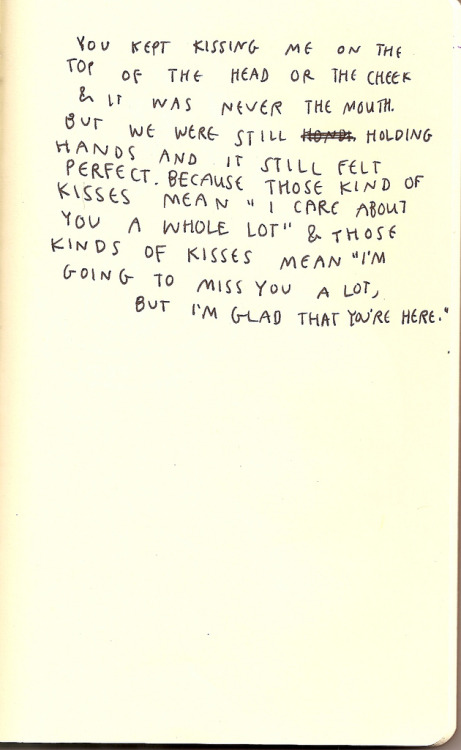 YOU KEPT KISSING ME ON THE
TOP OF THE HEAD OR THE CHEEK
& IT WAS NEVER THE MOUTH.
BUT WE WERE STILL HOLDING
HANDS AND IT STILL FELT
PERFECT. BECAUSE THOSE KIND OF
KISSES MEAN "I CARE ABOUT
YOU A WHOLE LOT" & THOSE
KINDS OF KISSES MEAN "I'M
GOING TO MISS YOU A LOT,
BUT I'M GLAD THAT YOU'RE HERE."